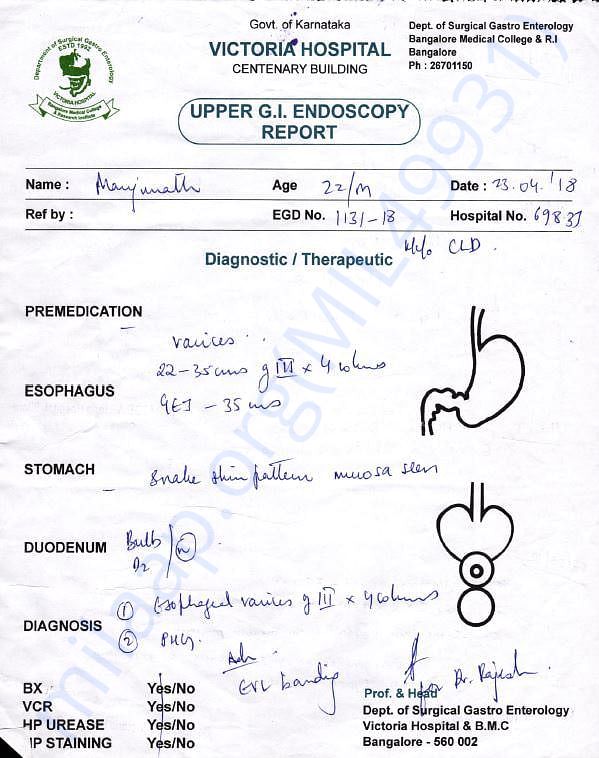 Department of Surgical Gastro Enterology
ESTD 1992
VICTORIA HOSPITAL
Bangalore Medical College
& Research Institute
Govt. of Karnataka
VICTORIA HOSPITAL
CENTENARY BUILDING
Dept. of Surgical Gastro Enterology
Bangalore Medical College & R.I
Bangalore
Ph : 26701150
UPPER G.I. ENDOSCOPY
REPORT
Name : Manjunath Age 22/M Date : 23.04.'18
Ref by : EGD No. 1131-18 Hospital No. 69837
Diagnostic / Therapeutic H/o CLD.
PREMEDICATION
varices
22-35 cms g III x 4 columns
ESOPHAGUS
GEJ - 35 cms
STOMACH Snake skin pattern mucosa seen
DUODENUM Bulb
D2 N
DIAGNOSIS
1 Esophageal varices g III x 4 columns
2 PHG.
Adv
EVL banding
for Dr. Rajesh.
Prof. & Head
Dept. of Surgical Gastro Enterology
Victoria Hospital & B.M.C
Bangalore - 560 002
BX Yes/No
VCR Yes/No
HP UREASE Yes/No
HP STAINING Yes/No
milaap.org(MIL499317)